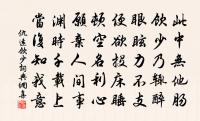 此中無他腸
飲少乃輒醉
眼眩力不支
便欲投床睡
頓空名利心
願棄人間事
淵明千載上
當復知我意
仇遠飲少詞典網書